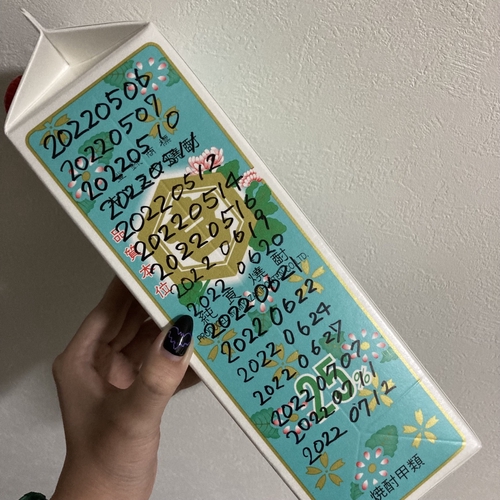 20220506
20220507
20220510
20220512
20220514
20220516
20220619
20220620
20220621
20220622
20220624
20220627
20220707
20220711
20220712
品質本位
純良焼酎
25%
焼酎甲類